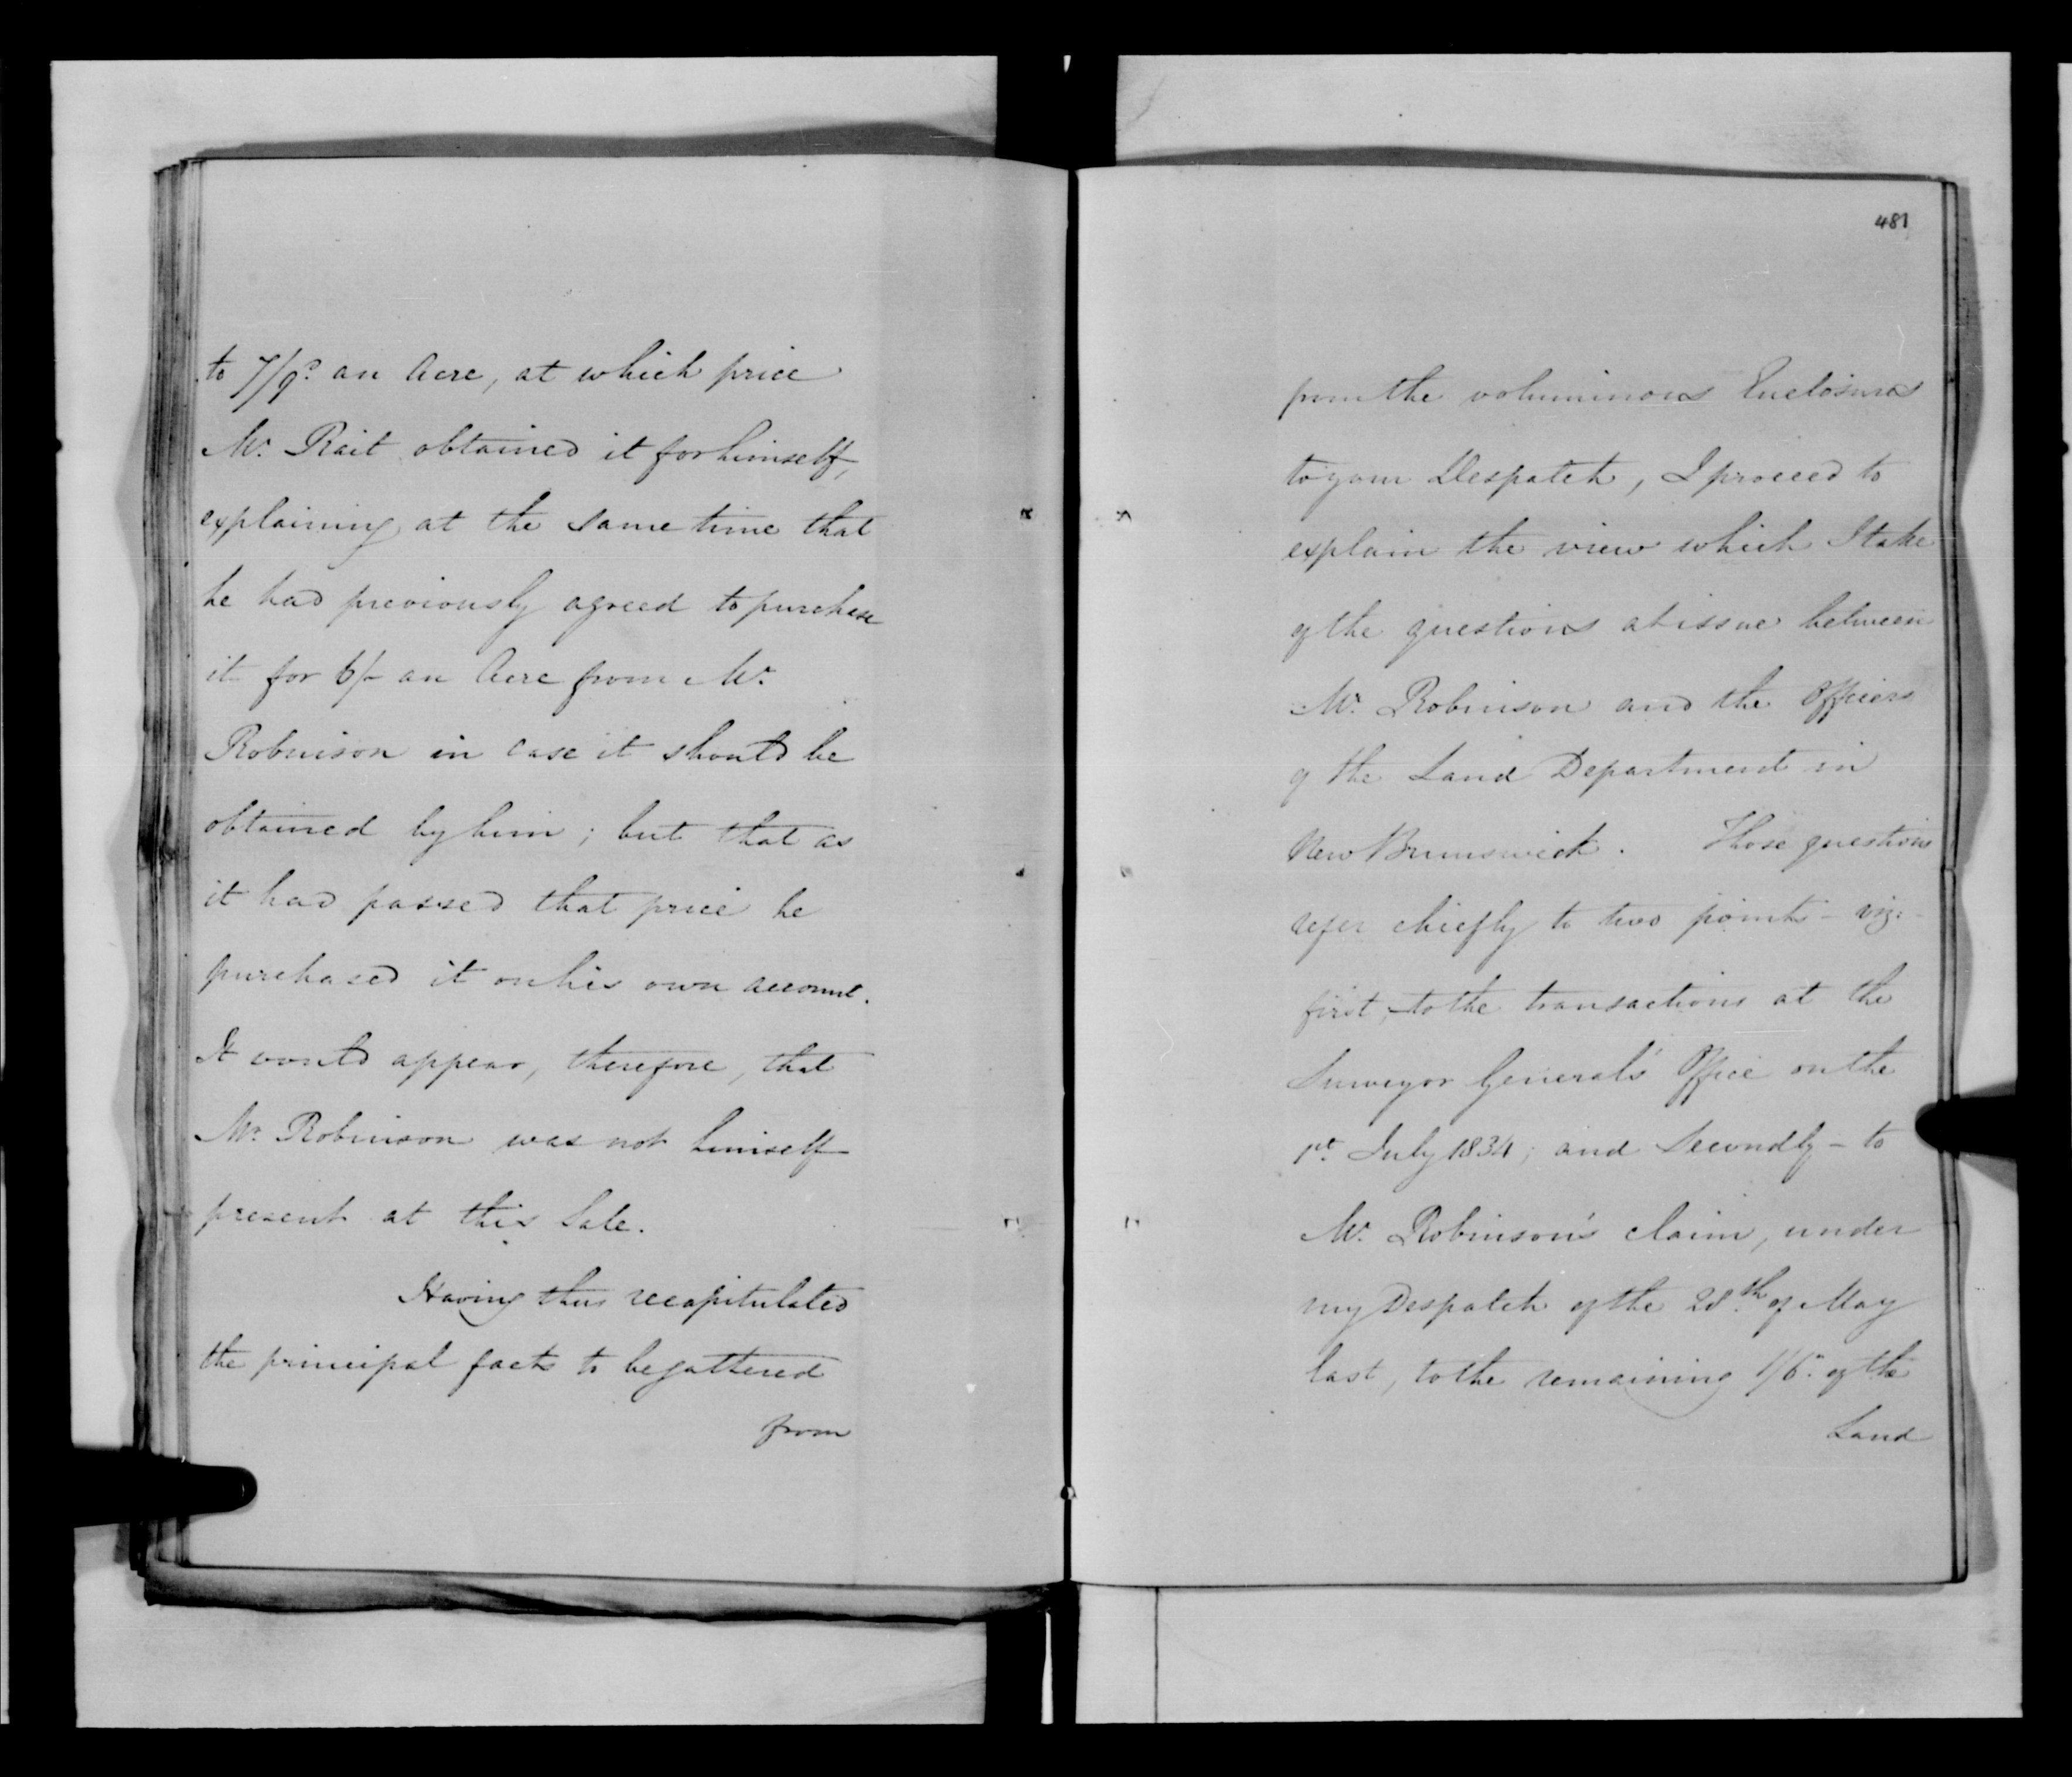 to 7/9d. an Acre, at which price
Mr. Rait obtained it for himself,
explaining at the same time that
he had previously agreed to purchase
it for 6/- an Acre from Mr.
Robinson in case it should be
obtained by him; but that as
it had passed that price he
purchased it on his own account.
It would appear, therefore, that
Mr. Robinson was not himself
present at this Sale.
Having thus recapitulated
the principal facts to be gathered
from
481
from the voluminous Enclosures
to your Despatch, I proceed to
explain the view which I take
of the questions at issue between
Mr. Robinson and the Officers
of the Land Department in
New Brunswick. Those questions
refer chiefly to two points - viz:-
first, - to the transactions at the
Surveyor General's Office on the
1st. July 1834; and Secondly - to
Mr. Robinson's claim, under
my Despatch of the 28th. of May
last, to the remaining 1/6. of the
Land